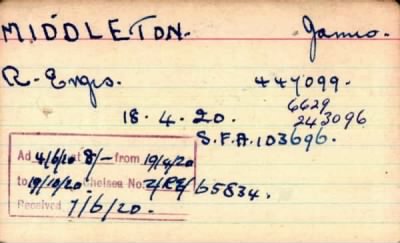 MIDDLETON. James.
R. Engrs. 447099.
6629
18.4.20. 243096
S.F.A. 103696.
Ad 4/6/20 at 8/- from 19/4/20
to 19/10/20. Chelsea No. 2/RE/65834.
Received 7/6/20.